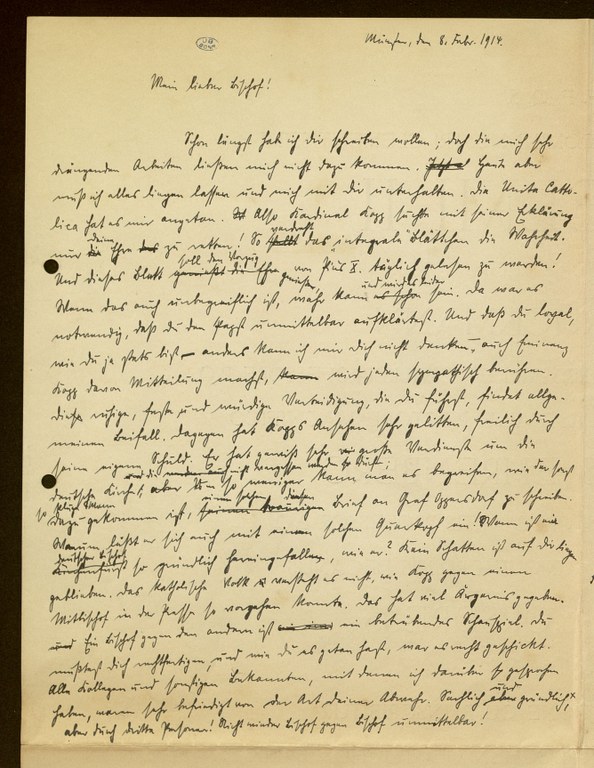 München, den 8. Febr. 1914.
Mein lieber Bischof!
Schon längst hab ich dir schreiben wollen; doch die mich sehr
drängenden Arbeiten ließen mich nicht dazu kommen. Heute aber
muß ich alles liegen lassen und mich mit dir unterhalten. Die Unita Catto-
lica hat es mir angetan. Also Kardinal Kopp suchte mit seiner Erklärung
nur deine Ehre zu retten! So verdreht das integrale Blättchen die Wahrheit.
Und dieses Blatt soll den Vorzug genießen, von Pius X. täglich gelesen zu werden!
Wenn das auch unbegreiflich ist, wahr kann und wird es leider sein. Da war es
notwendig, daß du den Papst unmittelbar aufklärtest. Und daß du loyal,
wie du ja stets bist – anders kann ich mir dich nicht denken –, auch Eminenz
Kopp davon Mitteilung machst, wird jeden sympathisch berühren.
Diese ruhige, feste und würdige Verteidigung, die du führst, findet allge-
meinen Beifall. Dagegen hat Kopps Ansehen sehr gelitten, freilich durch
seine eigene Schuld. Er hat gewiß sehr große Verdienste um die
deutsche Kirche, so weniger kann man es begreifen, wie der sonst
so kluge Mann dazu gekommen ist, einen solchen Brief an Graf Oppersdorf zu schreiben.
Warum läßt er sich auch mit einem solchen Querkopf ein! Wenn ist ein
deutscher Bischof so gründlich hereingefallen, wie er? Kein Schatten ist auf dir liegen
geblieben. Das katholische Volk versteht es nicht, wie Kopp gegen einen
Mitbischof in der Presse so vorgehen konnte. Das hat viel Ärgernis gegeben.
Ein Bischof gegen den andern ist ein betrübendes Schauspiel. Du
mußtest dich rechtfertigen, und wie du es getan hast, war es recht geschickt.
Alle Kollegen und sonstigen Bekannten, mit denen ich darüber gesprochen
haben, waren sehr befriedigt von der Art deiner Abwehr. Sachlich und gründlich,
aber durch dritte Personen! Nicht wieder Bischof gegen Bischof unmittelbar!